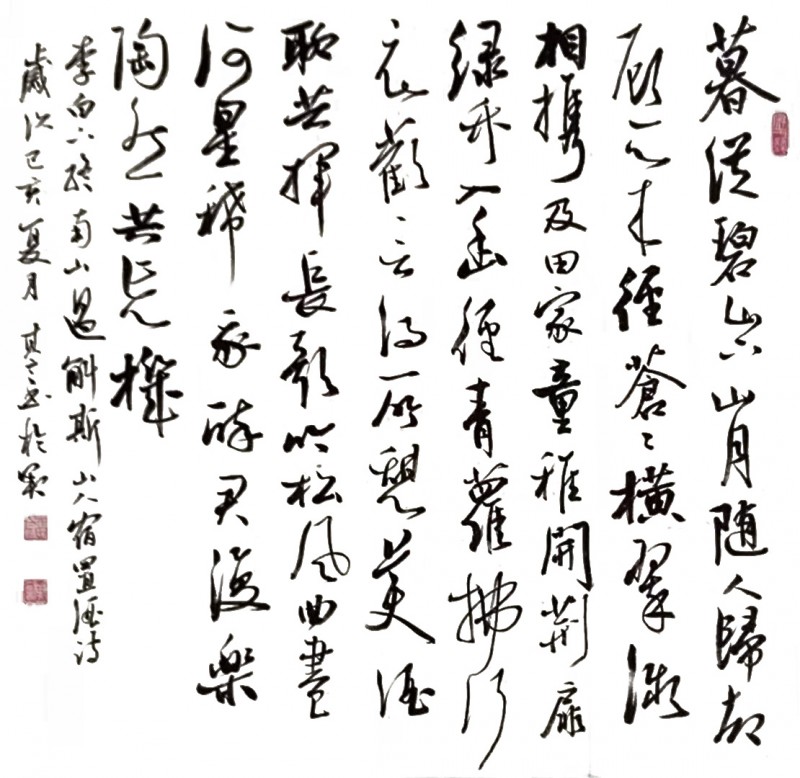 暮從碧山下山月随人歸却
顧所来徑蒼々橫翠微
相携及田家童稚開荆扉
緑竹入幽徑青蘿拂行
衣歡言得所憩美酒
聊共揮長歌吟松風曲盡
河星稀我醉君復樂
陶然共忘機
李白下終南山過斛斯山人宿置酒诗
歲次己亥夏月書於